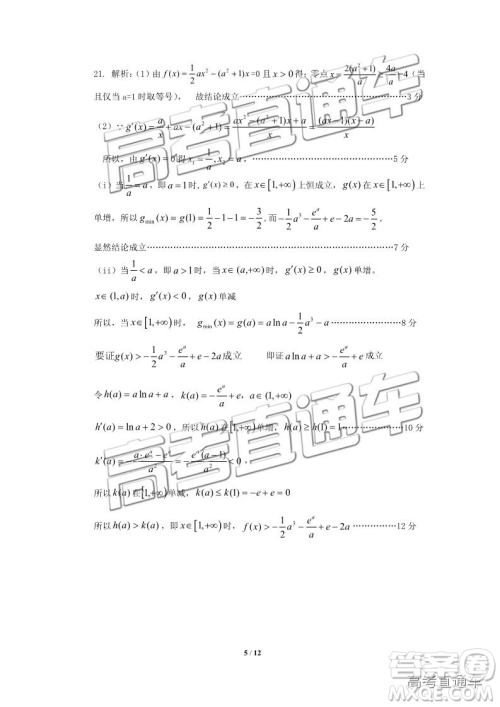 21. 解析：(1) 由 f(x)=1/2 ax²−(a²+1)x=0 且 x>0 得：零点 x=2(a²+1)/a ≥ 4a/a=4（当
且仅当 a=1 时取等号），故结论成立………………………3分
(2) ∵ g′(x)=a/x+ax−(a²+1)=(ax²−(a²+1)x+a)/x=(ax−1)(x−a)/x
所以，由 g′(x)=0 得 x₁=1/a, x₂=a，………………………5分
(i) 当 1/a=a，即 a=1 时，g′(x)≥0，在 x∈[1,+∞) 上恒成立，g(x) 在 x∈[1,+∞) 上
单增，所以 g_min(x)=g(1)=1/2−1−1=−3/2，而 −1/2 a³−eᵃ/a+e−2a=−5/2，
显然结论成立………………………7分
(ii) 当 1/a<a，即 a>1 时，当 x∈(a,+∞) 时，g′(x)≥0，g(x) 单增。
x∈(1,a) 时，g′(x)<0，g(x) 单减
所以，当 x∈[1,+∞) 时，g_min(x)=g(a)=a ln a−1/2 a³−a ………………………8分
要证 g(x)>−1/2 a³−eᵃ/a+e−2a 成立 即证 a ln a+a>−eᵃ/a+e 成立
令 h(a)=a ln a+a，k(a)=−eᵃ/a+e，a∈(1,+∞)
h′(a)=ln a+2>0，所以 h(a) 在 [1,+∞) 单增，h(a)≥h(1)=1………………10分
k′(a)=−(a·eᵃ−eᵃ)/a²=−eᵃ(a−1)/a²<0，
所以 k(a) 在 [1,+∞) 单减，k(a)≤k(1)=−e+e=0
所以 h(a)>k(a)，即 x∈[1,+∞) 时，f(x)>−1/2 a³−eᵃ/a+e−2a ………………12分
5 / 12
高考直通车
答案圈
高考直通车